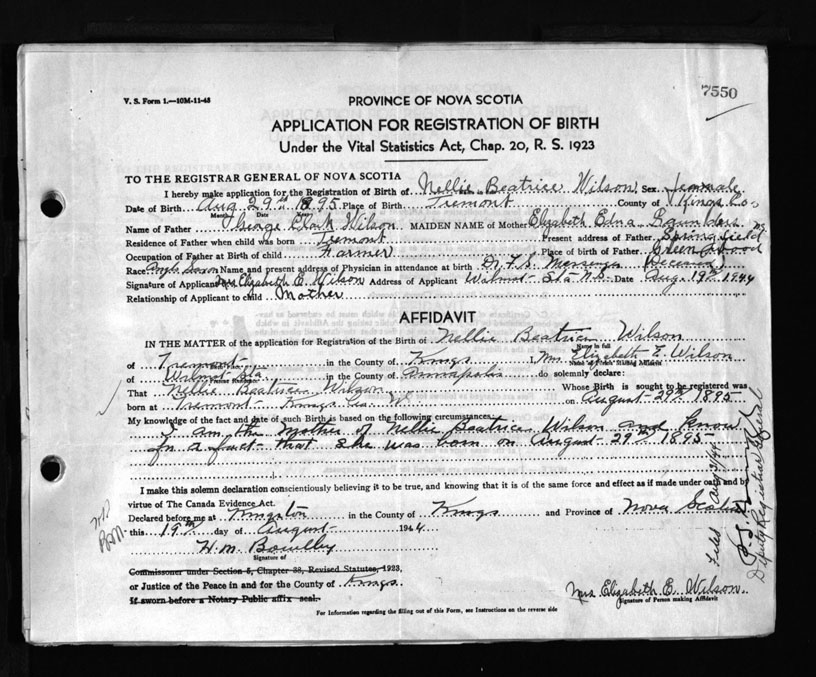 V. S. Form 1.—10M-11-43
7550
PROVINCE OF NOVA SCOTIA
APPLICATION FOR REGISTRATION OF BIRTH
Under the Vital Statistics Act, Chap. 20, R. S. 1923
TO THE REGISTRAR GENERAL OF NOVA SCOTIA
I hereby make application for the Registration of Birth of Nellie Beatrice Wilson Sex Female
Date of Birth Aug 29th 1895 Place of Birth Tremont County of Kings Co.
Month Date Year
Name of Father George Clark Wilson MAIDEN NAME of Mother Elizabeth Edna Saunders
Residence of Father when child was born Tremont Present address of Father Springfield
Occupation of Father at Birth of child Farmer Place of birth of Father Greenwood
Race Anglo Saxon Name and present address of Physician in attendance at birth Dr. (Deceased)
Signature of Applicant Mrs Elizabeth E. Wilson Address of Applicant Wilmot Sta N.S. Date Aug. 19th 1944
Relationship of Applicant to child Mother
AFFIDAVIT
IN THE MATTER of the application for Registration of the Birth of Nellie Beatrice Wilson
Name in full
of Tremont in the County of Kings Mrs Elizabeth E. Wilson
Name of Person Making Affidavit
of Wilmot Sta in the County of Annapolis do solemnly declare:
Present Residence
That Nellie Beatrice Wilson Whose Birth is sought to be registered was
born at Tremont Kings Co. on August 29th 1895
My knowledge of the fact and date of such Birth is based on the following circumstances:
I am the Mother of Nellie Beatrice Wilson and know
for a fact that she was born on August 29th 1895
I make this solemn declaration conscientiously believing it to be true, and knowing that it is of the same force and effect as if made under oath and by
virtue of The Canada Evidence Act.
Declared before me at Kingston in the County of Kings and Province of Nova Scotia
this 19th day of August 1944
H. M.
Signature of
Commissioner under Section 5, Chapter 38, Revised Statutes, 1923,
or Justice of the Peace in and for the County of Kings.
If sworn before a Notary Public affix seal.
Mrs. Elizabeth E. Wilson.
Signature of Person making Affidavit
For Information regarding the filling out of this Form, see Instructions on the reverse side
Deputy Registrar General